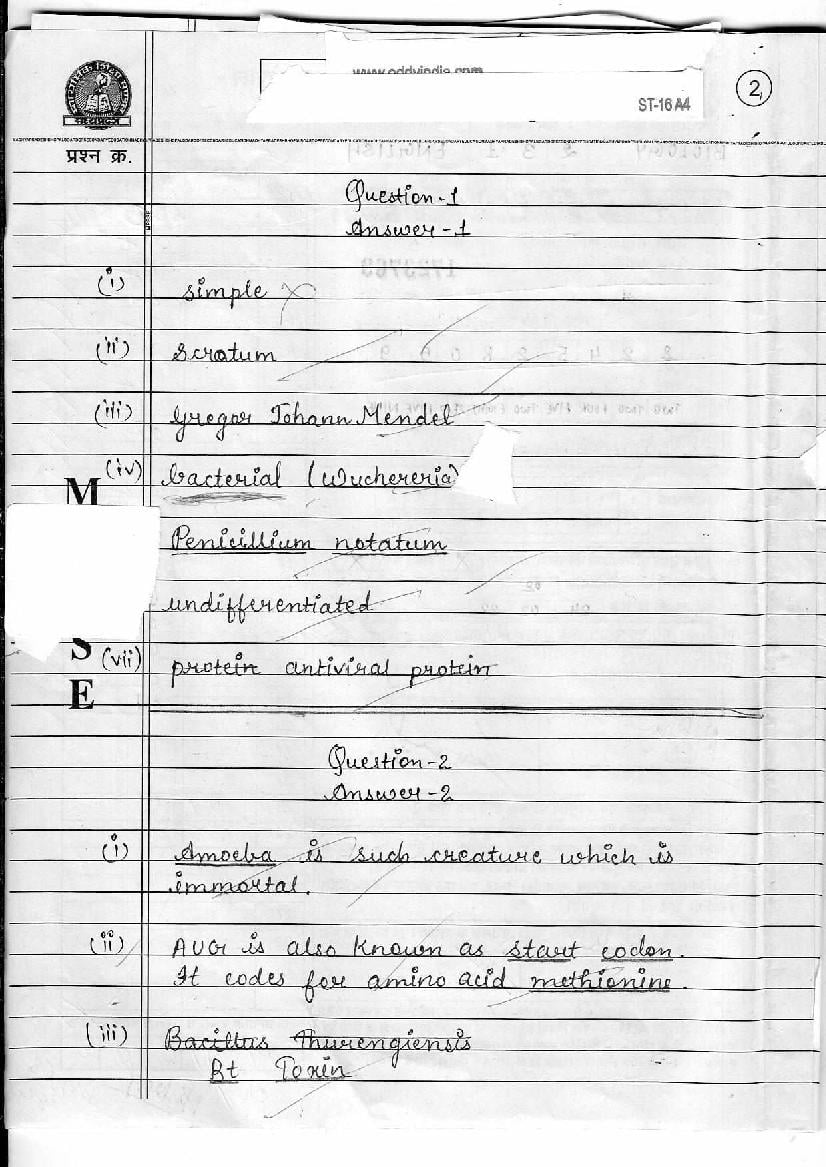 www.oddyindia.com
ST-16 A4
2
प्रश्न क्र.
Question-1
Answer-1
(i) simple
(ii) Scrotum
(iii) Gregor Johann Mendel
(iv) bacterial (Wuchereria)
M
Penicillium notatum
undifferentiated
S
(vii) protein antiviral protein
E
Question-2
Answer-2
(i) Amoeba is such creature which is
immortal.
(ii) AUG is also known as start codon.
It codes for amino acid methionine.
(iii) Bacillus Thurengiensis
Bt Toxin